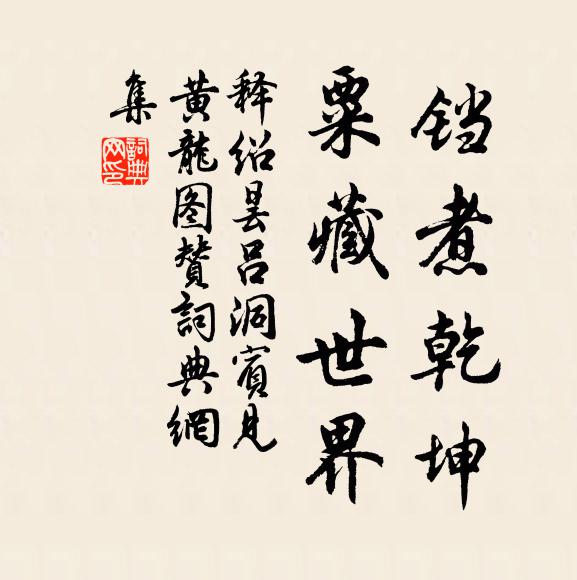 铛煮乾坤
粟藏世界
释绍昙吕洞賓見
黄龍图賛詞典網
集
詞典
网印